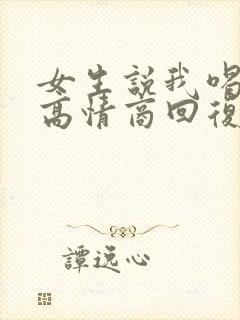 女生説我喝
高情商回復
譚逸心